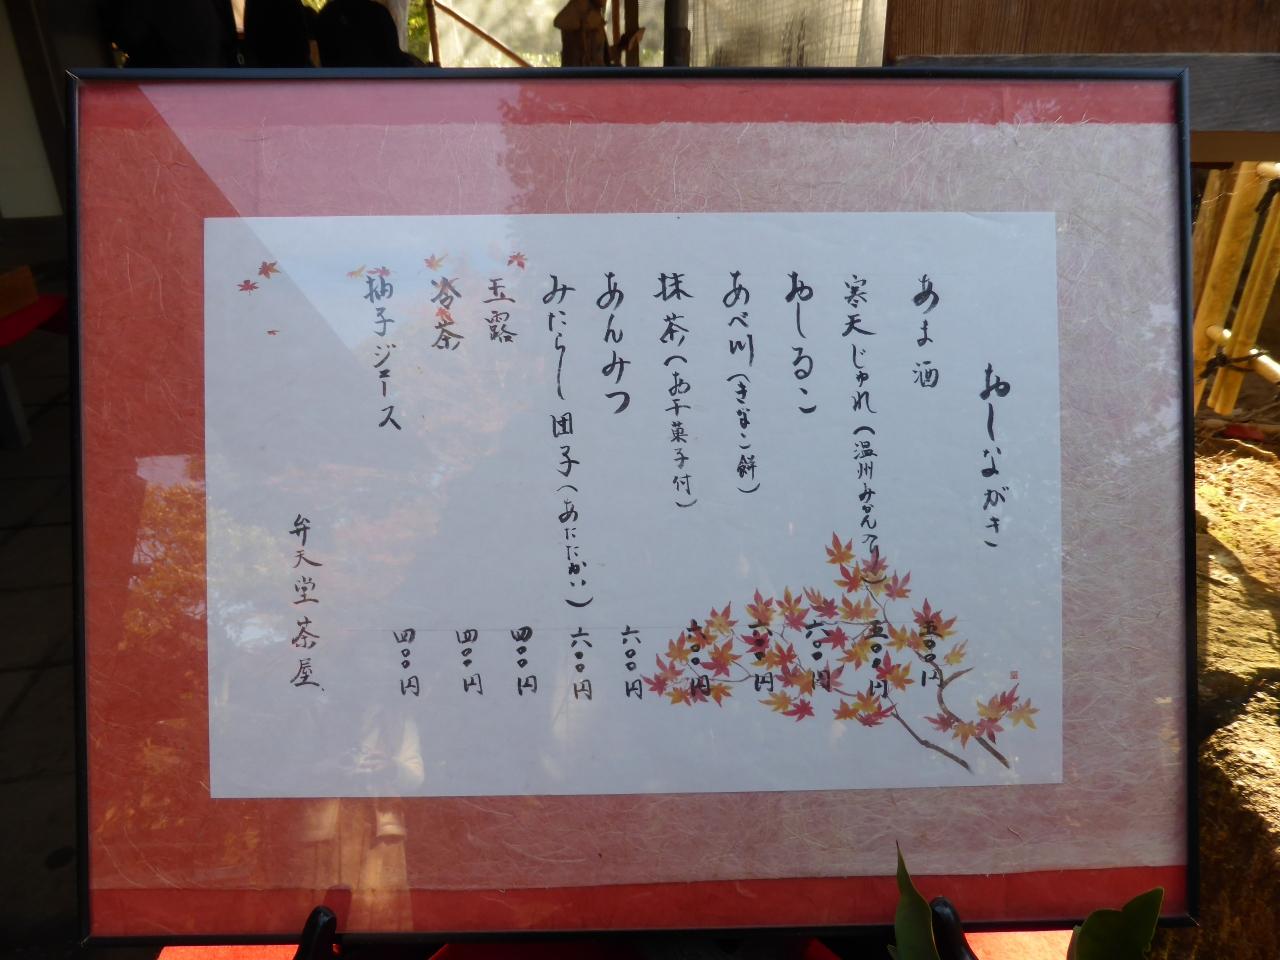 おしながき
あま酒 五〇〇円
寒天じゅれ(温州みかん入り) 五〇〇円
おしるこ 六〇〇円
あべ川(きなこ餅) 六〇〇円
抹茶(お干菓子付) 六〇〇円
あんみつ 六〇〇円
みたらし団子(あたたかい) 六〇〇円
玉露 四〇〇円
冷茶 四〇〇円
柚子ジュース 四〇〇円
弁天堂茶屋